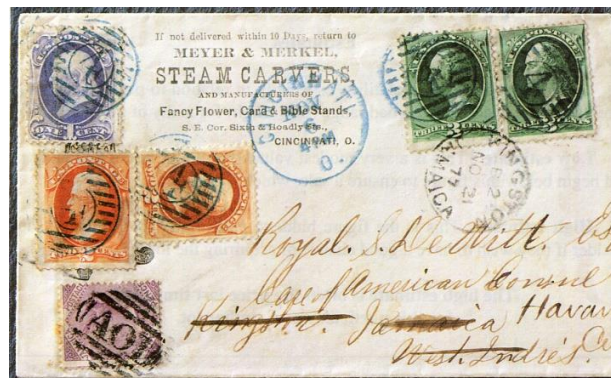 If not delivered within 10 Days, return to
MEYER & MERKEL,
STEAM CARVERS,
AND MANUFACTURERS OF
Fancy Flower, Card & Bible Stands,
S. E. Cor. Sixth & Hoadly Sts.,
CINCINNATI, O.
ONE 1 CENT
THREE 3 CENTS
KINGSTON
B 2
NO 21
77
JAMAICA
TWO 2 CENTS
A01
Royal. S. DeWitt. Es
Care of American Consul
Kingston. Jamaica Havan
West. Indies. Cu